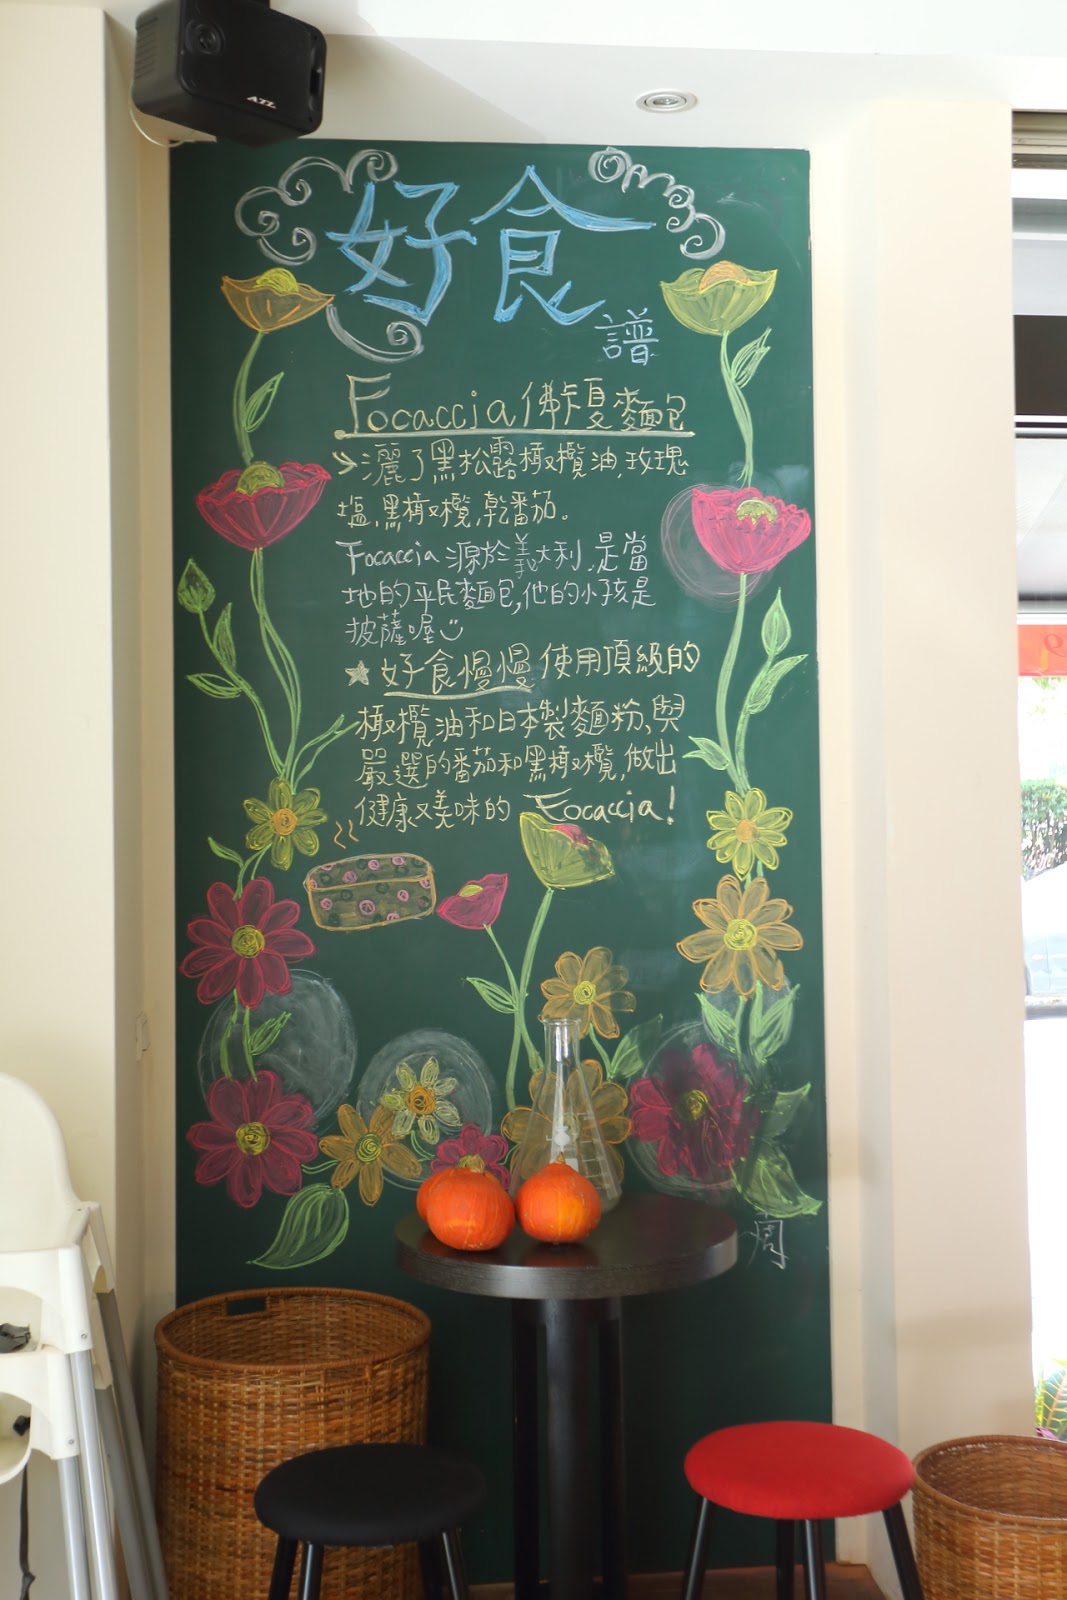 ATL
好食
譜
Focaccia佛卡夏麵包
灑了黑松露橄欖油,玫瑰
塩,黑橄欖,乾番茄。
Focaccia 源於義大利,是當
地的平民麵包,他的小孩是
披薩喔
★好食慢慢 使用頂級的
橄欖油和日本製麵粉,與
嚴選的番茄和黑橄欖,做出
健康又美味的 Focaccia!
周